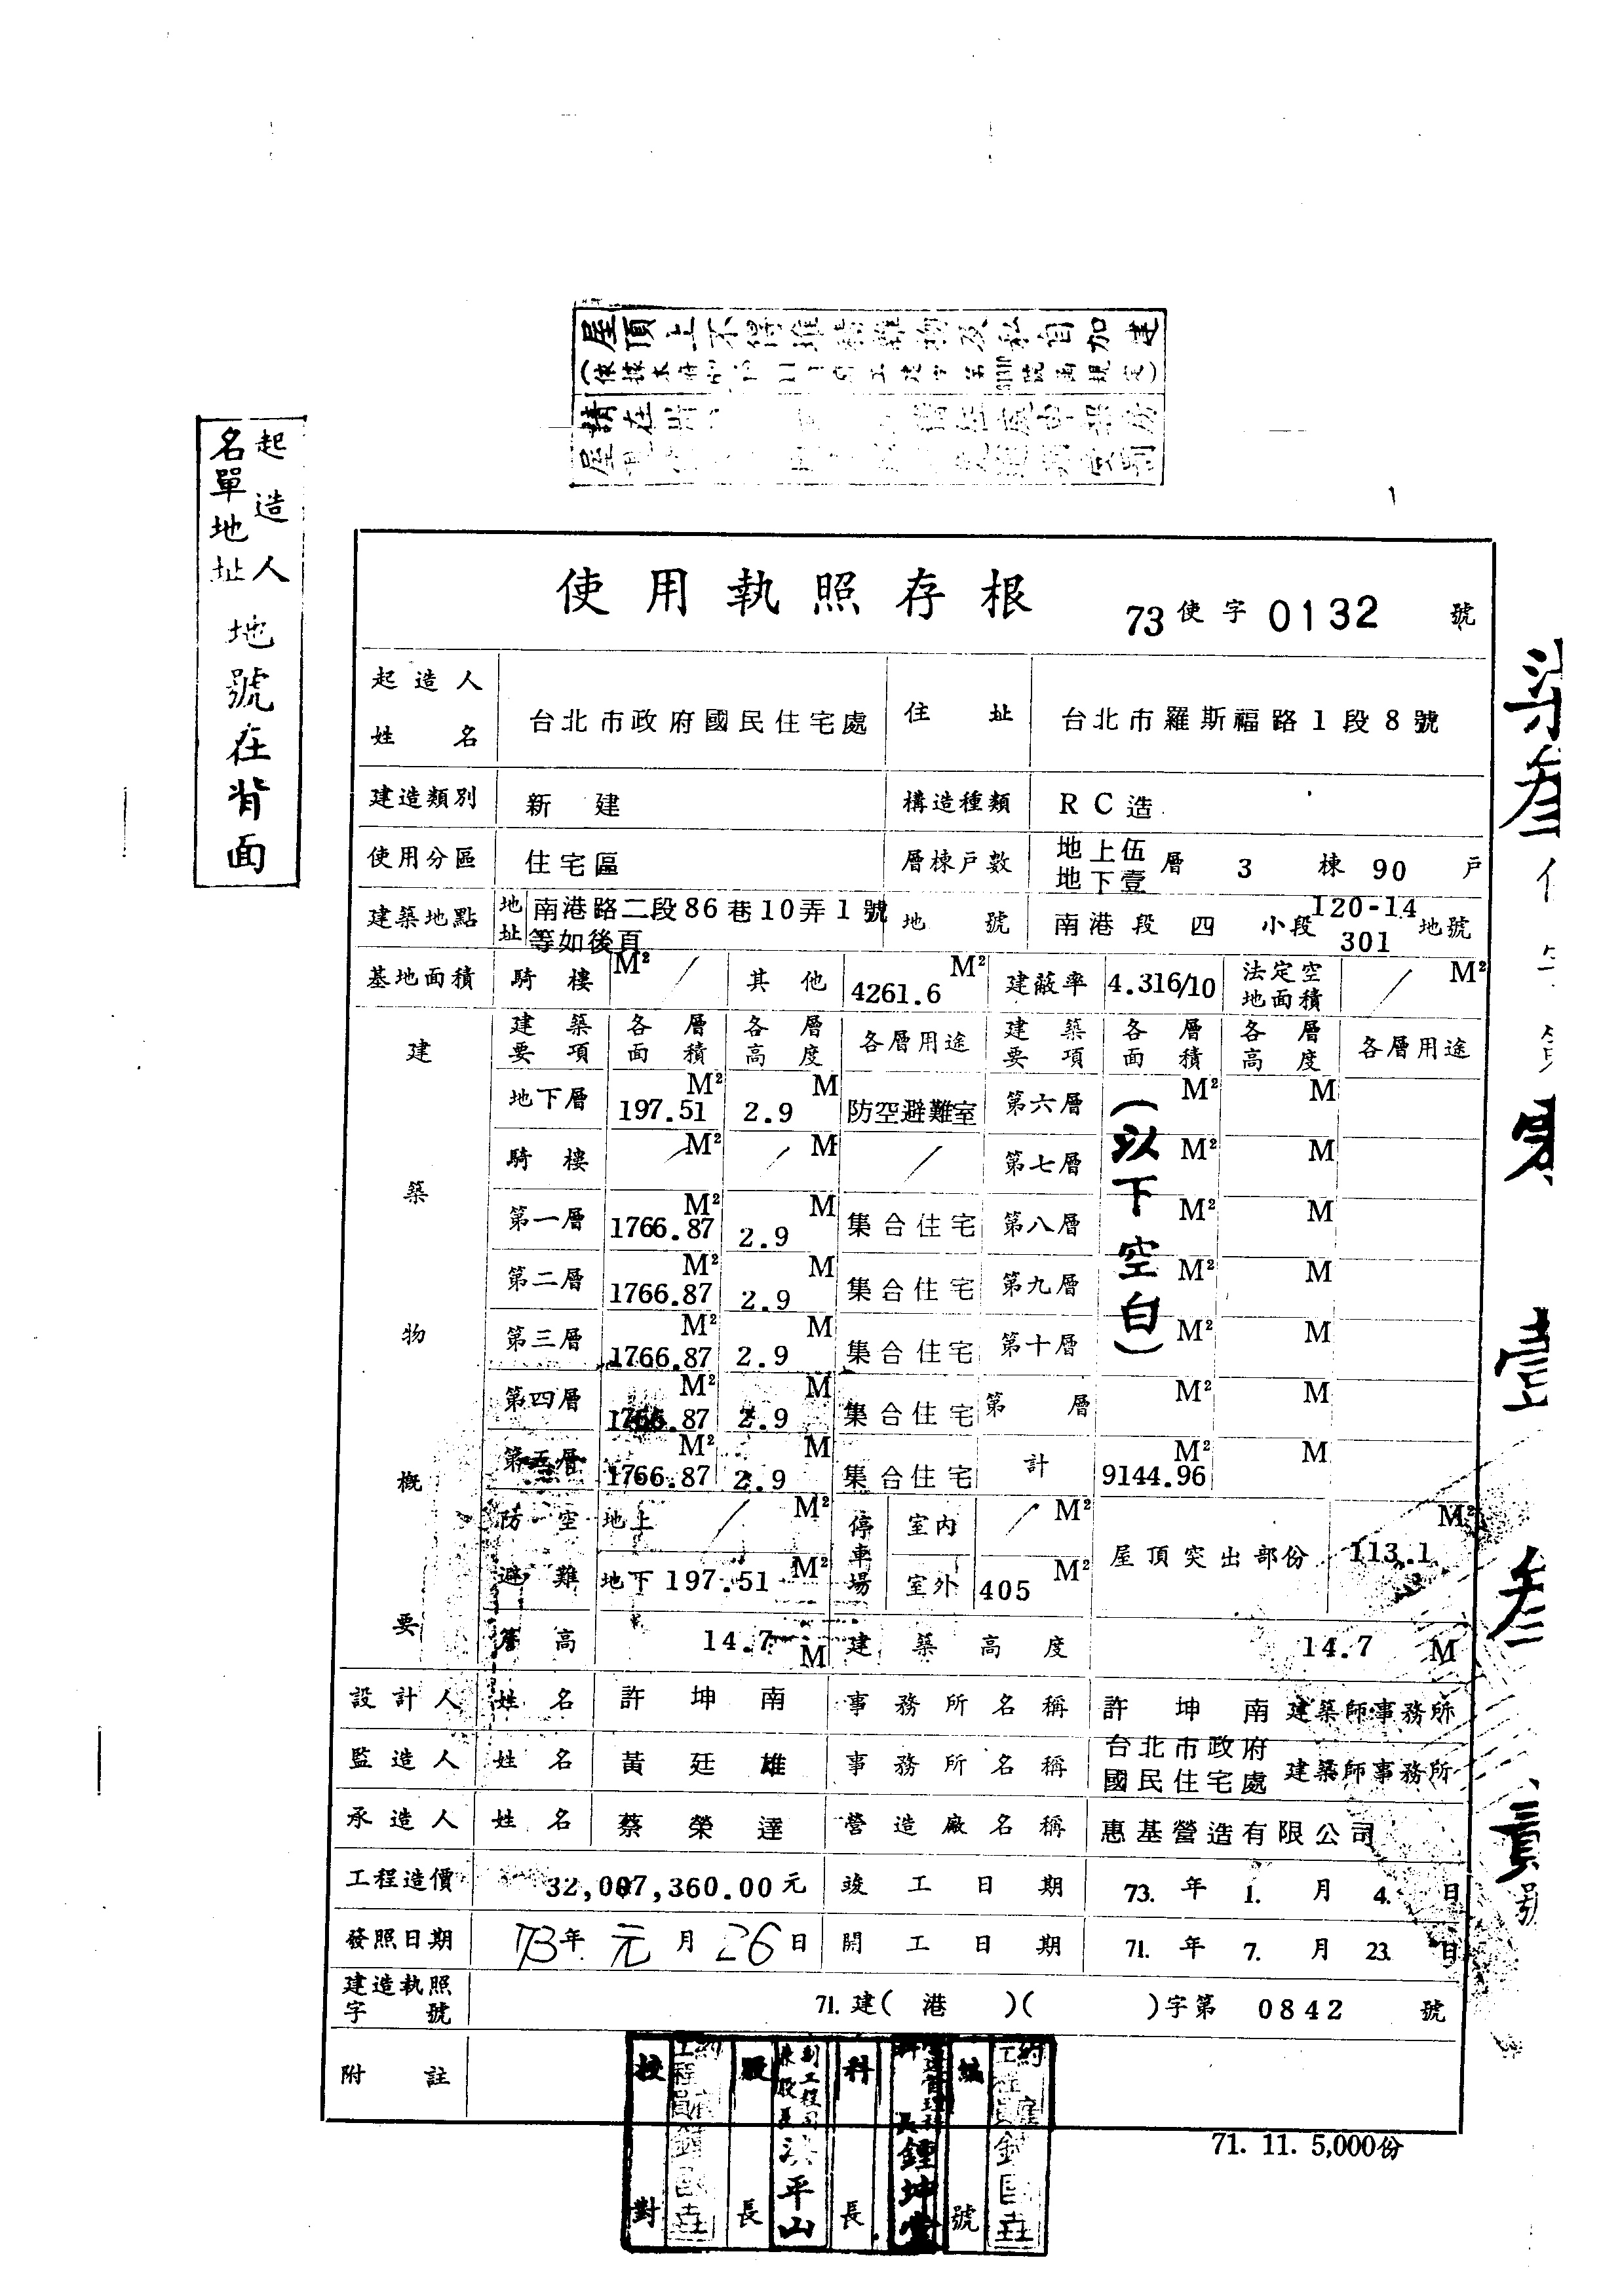 屋頂上不得堆雜物及私自加建
起造人
名單地址
地號在背面
使用執照存根
73使字0132號
起造人姓名 台北市政府國民住宅處 住址 台北市羅斯福路1段8號
建造類別 新建 構造種類 RC造
使用分區 住宅區 層棟戶數 地上伍地下壹層 3棟 90戶
建築地點 地址 南港路二段86巷10弄1號等如後頁 地號 南港段四小段120-14 301地號
基地面積 騎樓 M² / 其他 4261.6 M² 建蔽率 4.316/10 法定空地面積 / M²
建築物概要
建築要項 各層面積 各層高度 各層用途 建築要項 各層面積 各層高度 各層用途
地下層 197.51 M² 2.9 M 防空避難室 第六層 M² M
騎樓 / M² / M / 第七層 M² M
第一層 1766.87 M² 2.9 M 集合住宅 第八層 M² M
第二層 1766.87 M² 2.9 M 集合住宅 第九層 M² M
第三層 1766.87 M² 2.9 M 集合住宅 第十層 M² M
(以下空白)
第四層 1766.87 M² 2.9 M 集合住宅 第 層 M² M
第五層 1766.87 M² 2.9 M 集合住宅 計 9144.96 M² M
防空避難 地上 / M² 停車場 室內 / M² 屋頂突出部份 113.1 M²
地下 197.51 M² 室外 405 M²
簷高 14.7 M 建築高度 14.7 M
設計人 姓名 許坤南 事務所名稱 許坤南建築師事務所
監造人 姓名 黃廷雄 事務所名稱 台北市政府國民住宅處建築師事務所
承造人 姓名 蔡榮達 營造廠名稱 惠基營造有限公司
工程造價 32,007,360.00元 竣工日期 73.年1.月4.日
發照日期 73年元月26日 開工日期 71.年7.月23.日
建造執照字號 71.建(港)( )字第0842號
附註
校對
股長
科長
鍾坤堂
號
71. 11. 5,000份